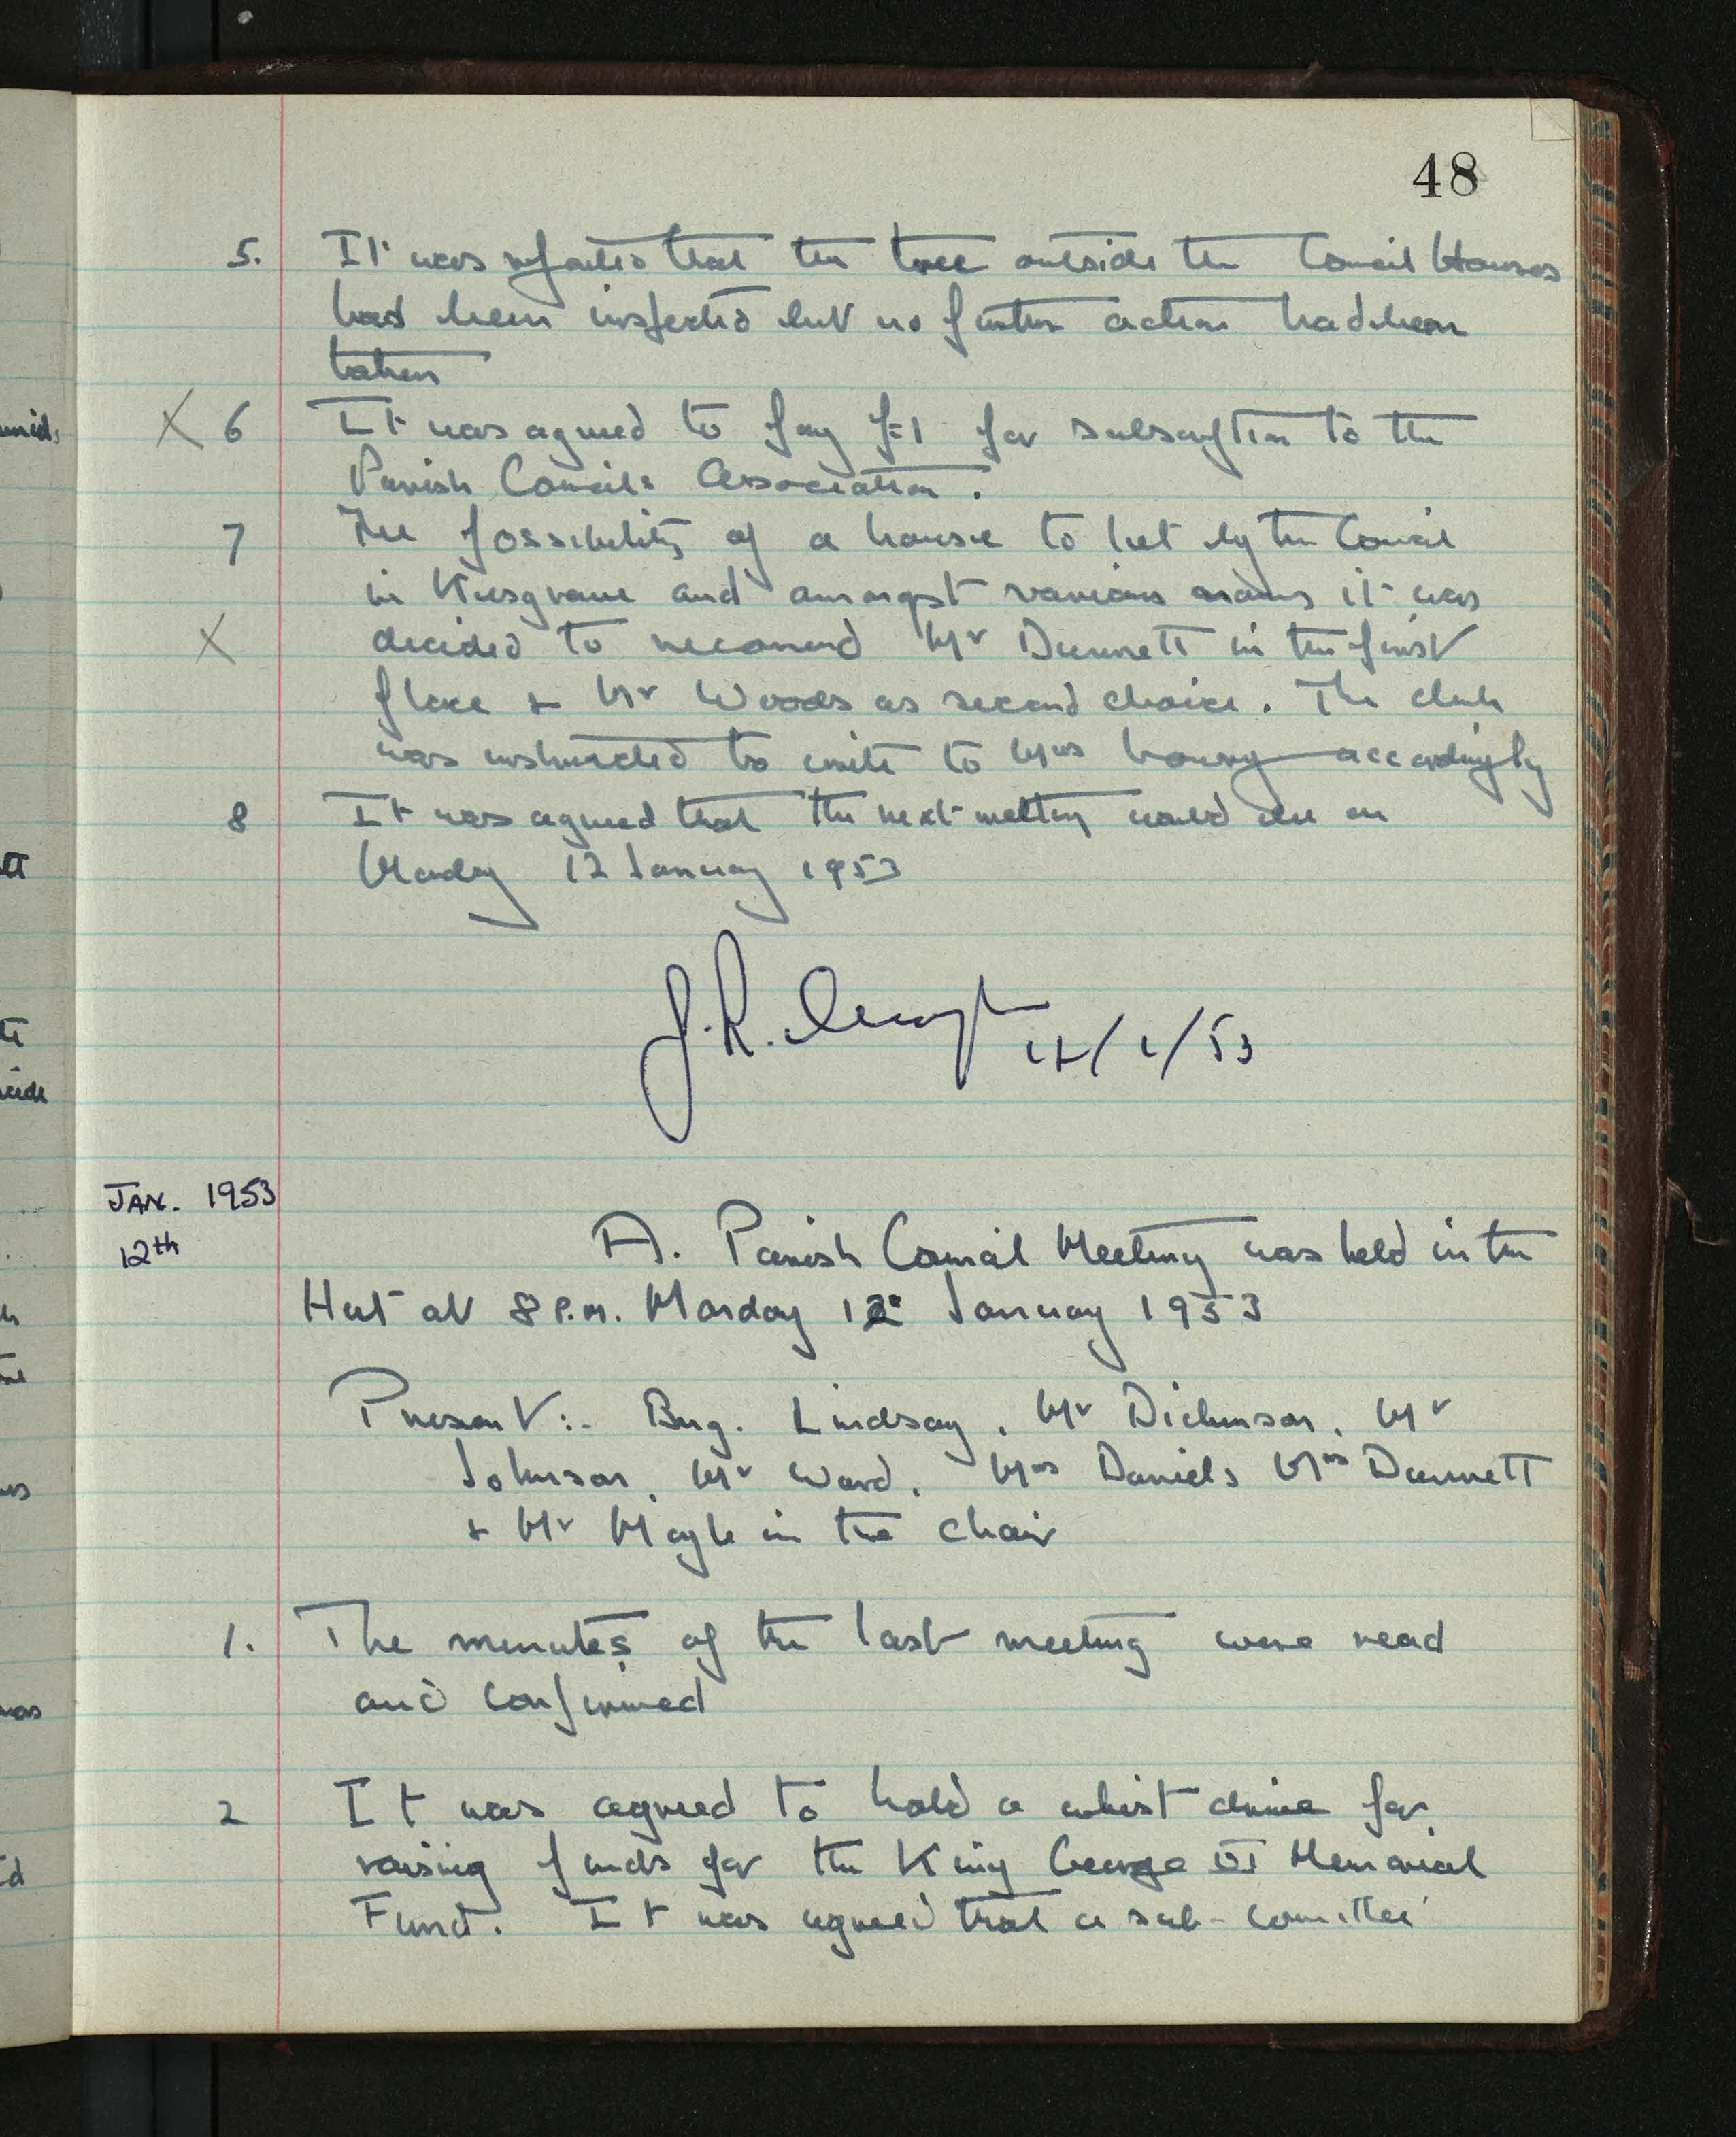 48
5. It was reported that the tree outside the Council Houses
had been inspected but no further action had been
taken
X 6 It was agreed to pay £1 for subscription to the
Parish Councils Association.
7 The possibility of a house to let by the Council
in Kesgrave and amongst various names it was
X decided to recomend Mr Dunnett in the first
place + Mr Woods as second choice. The clerk
was instructed to write to Mrs accordingly
8 It was agreed that the next meeting would be on
Monday 12 January 1953
J.R. /53
JAN. 1953
12th
A. Parish Council Meeting was held in the
Hut at 8 P.M. Monday 12 January 1953
Present:- Brig. Lindsay, Mr Dickinson, Mr
Johnson, Mr Ward, Mrs Daniels Mrs Dunnett
+ Mr Mayle in the chair
1. The minutes of the last meeting were read
and confirmed
2 It was agreed to hold a whist drive for
raising funds for the King George VI Memorial
Fund. It was agreed that a sub-comittee